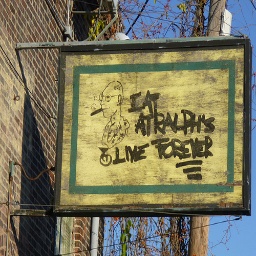 EAT
AT RALPH'S
LIVE FOREVER